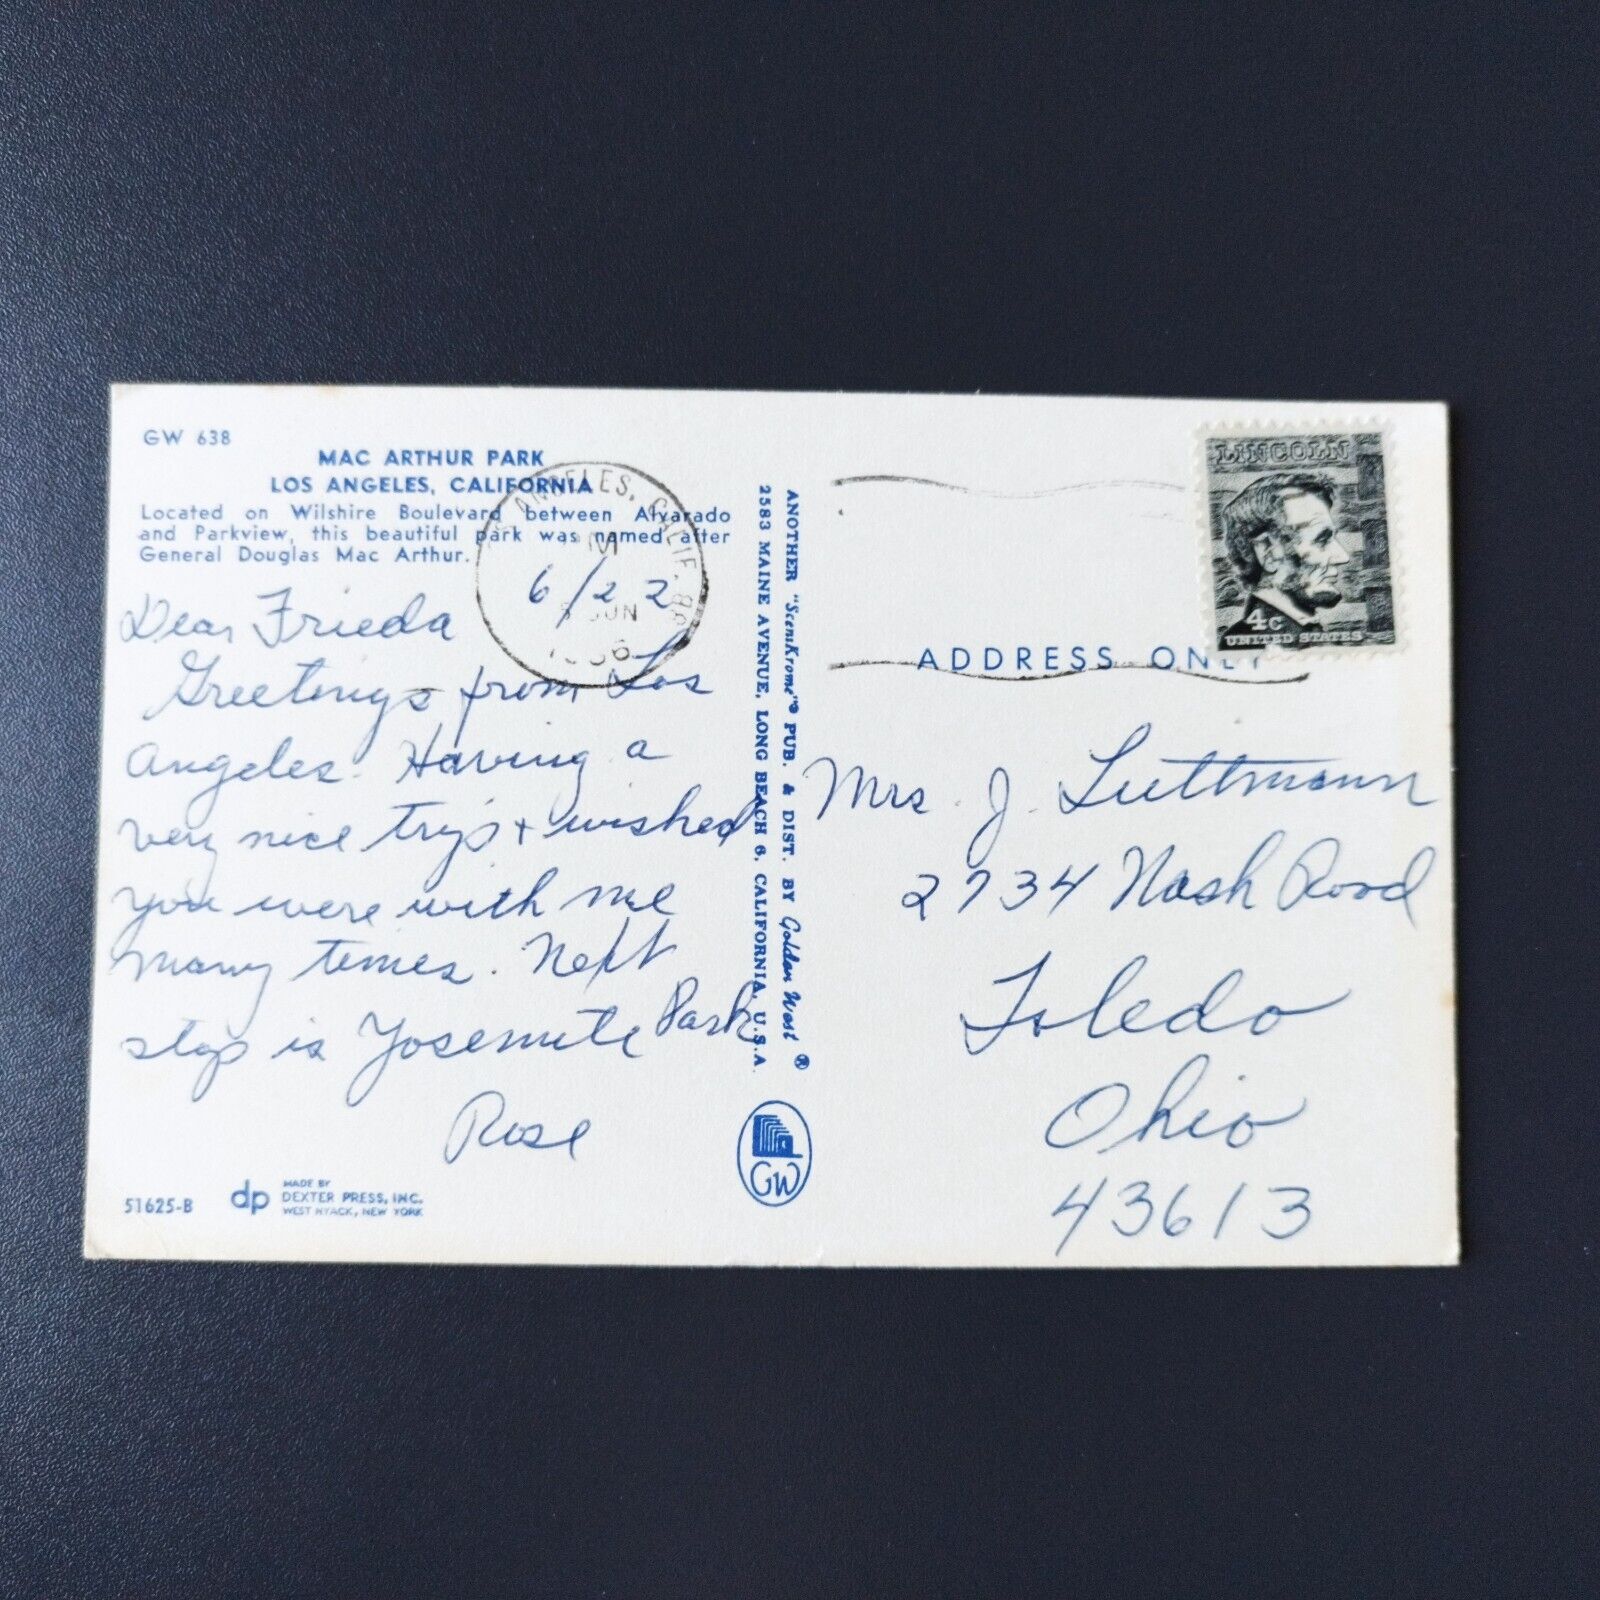 GW 638
MAC ARTHUR PARK
LOS ANGELES, CALIFORNIA
Located on Wilshire Boulevard between Alvarado
and Parkview, this beautiful park was named after
General Douglas Mac Arthur.
ANGELES, CALIF. 
6/22
JUN
Dear Frieda
Greetings from Los
Angeles. Having a
very nice trip + wished
you were with me
many times. Next
stop is Yosemite Park
Rose
51625-B
dp
MADE BY
DEXTER PRESS, INC.
WEST NYACK, NEW YORK
ANOTHER "Scenikrome"® PUB. & DIST. BY Golden West ®
2583 MAINE AVENUE, LONG BEACH 6, CALIFORNIA, U.S.A.
GW
LINCOLN
4c
UNITED STATES
ADDRESS ONLY
Mrs. J. Luttmann
2734 Nash Road
Toledo
Ohio
43613